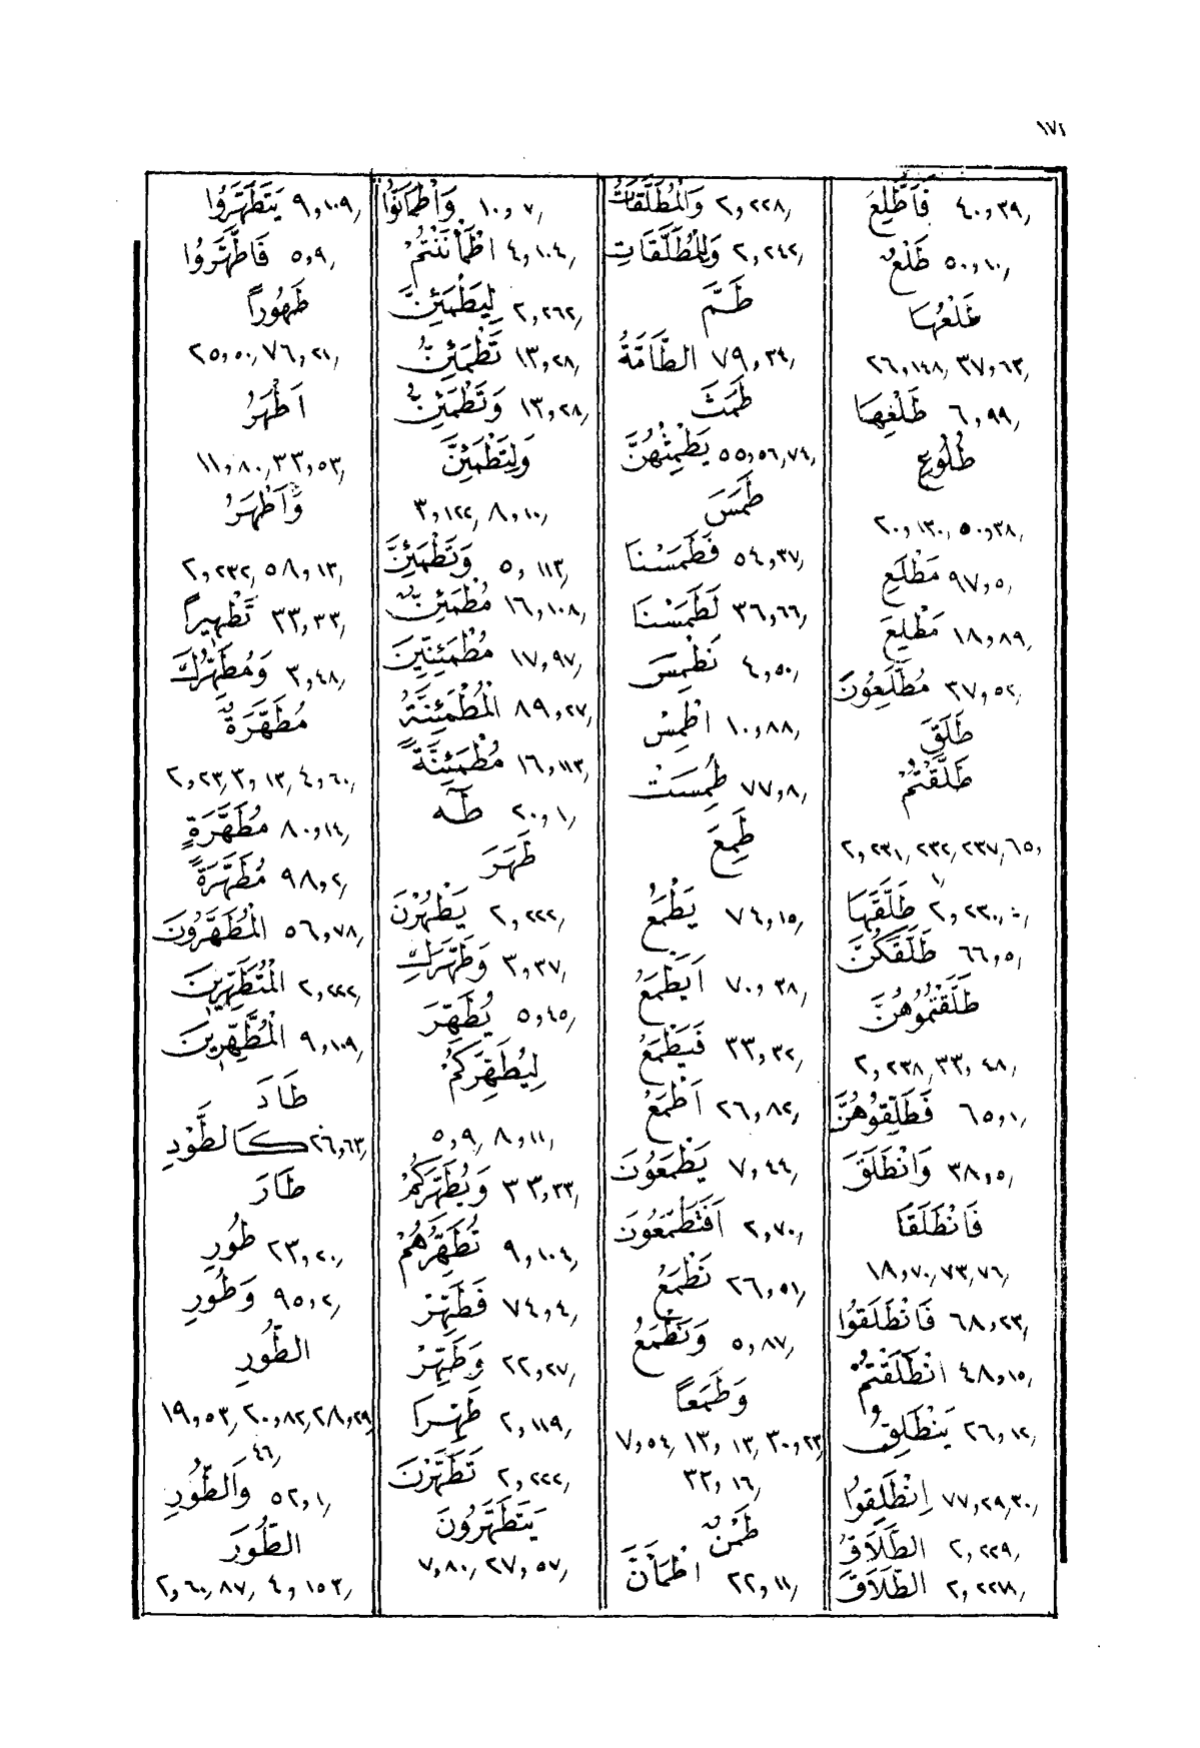 ١٧٤
فَاَطَّلِعَ ٤٠,٣٩
طَلْعٌ ٥٠,١٠
طَلْعُهَا
٢٦,١٤٨, ٣٧,٦٣
طَلْعِهَا ٦,٩٩
طُلُوعِ
٢٠,١٣٠, ٥٠,٣٨
مَطْلَعِ ٩٧,٥
مَطْلِعَ ١٨,٨٩
مُطَّلِعُونَ ٣٧,٥٢
طَلَقَ
طَلَّقْتُمُ
٢,٢٣١, ٢٣٢, ٢٣٧, ٦٥,
١
طَلَّقَهَا ٢,٢٣٠
طَلَّقَكُنَّ ٦٦,٥
طَلَّقْتُمُوهُنَّ
٢,٢٣٨, ٣٣,٤٨
فَطَلِّقُوهُنَّ ٦٥,١
وَانْطَلَقَ ٣٨,٥
فَانْطَلَقَا
١٨,٧٠, ٧٣,٧٦
فَانْطَلَقُوا ٦٨,٢٣
انْطَلَقْتُمْ ٤٨,١٥
يَنْطَلِقُ ٢٦,١٢
اِنْطَلِقُوا ٧٧,٢٩,٣٠
الطَّلَاقُ ٢,٢٢٩
الطَّلَاقَ ٢,٢٢٧
وَالْمُطَلَّقَاتُ ٢,٢٢٨
وَلِلْمُطَلَّقَاتِ ٢,٢٤٢
طَمَّ
الطَّامَّةُ ٧٩,٣٤
طَمَثَ
يَطْمِثْهُنَّ ٥٥,٥٦,٧٤
طَمَسَ
فَطَمَسْنَا ٥٤,٣٧
لَطَمَسْنَا ٣٦,٦٦
نَطْمِسَ ٤,٥٠
اطْمِسْ ١٠,٨٨
طُمِسَتْ ٧٧,٨
طَمِعَ
يَطْمَعُ ٧٤,١٥
اَيَطْمَعُ ٧٠,٣٨
فَيَطْمَعَ ٣٣,٣٢
اَطْمَعُ ٢٦,٨٢
يَطْمَعُونَ ٧,٤٤
اَفَتَطْمَعُونَ ٢,٧٠
نَطْمَعُ ٢٦,٥١
وَنَطْمَعُ ٥,٨٧
وَطَمَعًا
٧,٥٤, ١٣,١٣, ٣٠,٢٣
٣٢,١٦
طَمْنٌ
اطْمَأَنَّ ٢٢,١١
وَاطْمَاَنُّوا ١٠,٧
اطْمَأْنَنْتُمْ ٤,١٠٤
لِيَطْمَئِنَّ ٢,٢٦٢
تَطْمَئِنُّ ١٣,٢٨
وَتَطْمَئِنُّ ١٣,٢٨
وَلِتَطْمَئِنَّ
٣,١٢٢, ٨,١٠
وَتَطْمَئِنَّ ٥,١١٣
مُطْمَئِنٌّ ١٦,١٠٨
مُطْمَئِنِّينَ ١٧,٩٧
الْمُطْمَئِنَّةُ ٨٩,٢٧
مُطْمَئِنَّةً ١٦,١١٣
طٰهٰ ٢٠,١
طَهَرَ
يَطْهُرْنَ ٢,٢٢٢
وَطَهَّرَكِ ٣,٣٧
يُطَهِّرَ ٥,٤٥
لِيُطَهِّرَكُمْ
٥,٩, ٨,١١
وَيُطَهِّرَكُمْ ٣٣,٣٣
تُطَهِّرُهُمْ ٩,١٠٤
فَطَهِّرْ ٧٤,٤
وَطَهِّرْ ٢٢,٢٧
طَهِّرَا ٢,١١٩
تَطَهَّرْنَ ٢,٢٢٢
يَتَطَهَّرُونَ
٧,٨٠, ٢٧,٥٧
يَتَطَهَّرُوا ٩,١٠٩
فَاطَّهَّرُوا ٥,٩
طَهُورًا
٢٥,٥٠, ٧٦,٢١
اَطْهَرُ
١١,٨٠, ٣٣,٥٣
وَاَطْهَرُ
٢,٢٣٢, ٥٨,١٣
تَطْهِيرًا ٣٣,٣٣
وَمُطَهِّرُكَ ٣,٤٨
مُطَهَّرَةٌ
٢,٢٣, ٣,١٣, ٤,٦٠
مُطَهَّرَةٍ ٨٠,١٤
مُطَهَّرَةً ٩٨,٢
الْمُطَهَّرُونَ ٥٦,٧٨
الْمُتَطَهِّرِينَ ٢,٢٢٢
الْمُطَّهِّرِينَ ٩,١٠٩
طَادَ
كَالطَّوْدِ ٢٦,٦٣
طَارَ
طُورِ ٢٣,٢٠
وَطُورِ ٩٥,٢
الطُّورِ
١٩,٥٣, ٢٠,٨٢, ٢٨,٢٩
٤٦
وَالطُّورِ ٥٢,١
الطُّورَ
٢,٦٠,٨٧, ٤,١٥٣